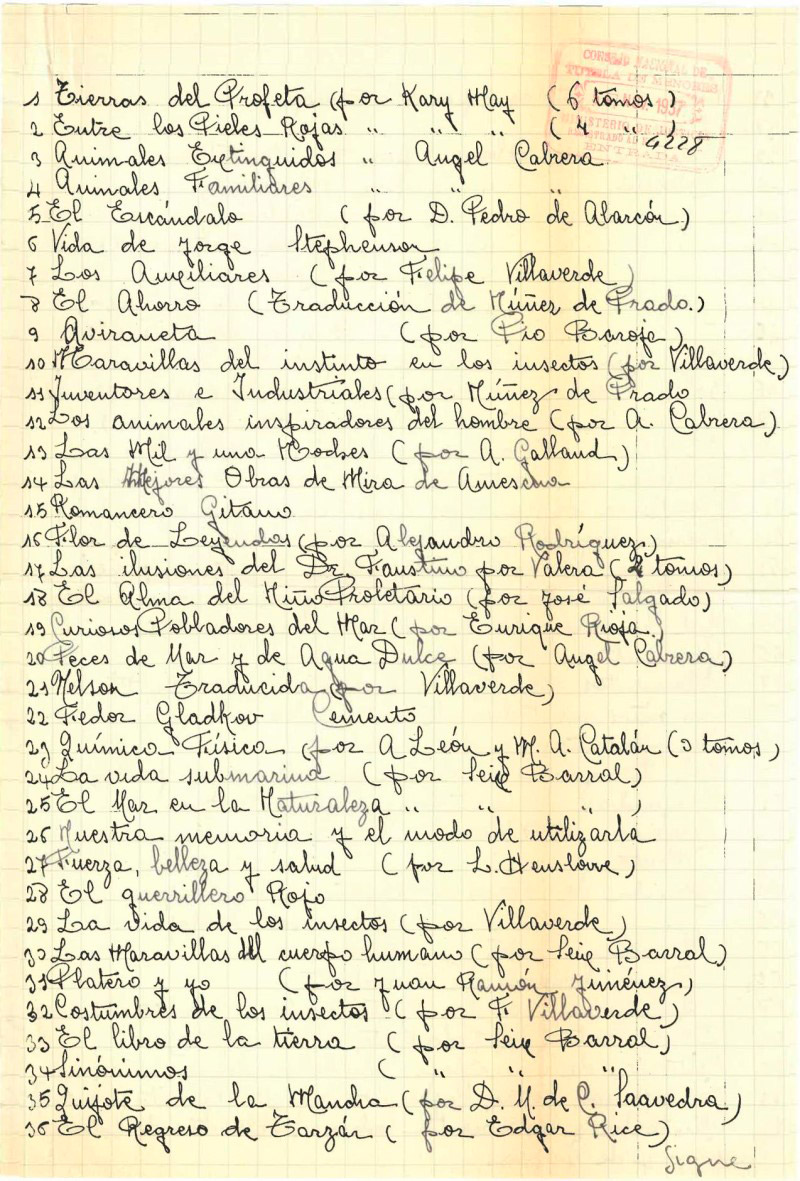 CONSEJO NACIONAL DE
TUTELA DE MENORES
1937
MINISTERIO DE
ENTRADA
4228
1 Tierras del Profeta (por Kary May (6 tomos)
2 Entre los Pieles Rojas " " " (4 " )
3 Animales Extinguidos " Angel Cabrera
4 Animales Familiares " " "
5 El Escándalo (por D. Pedro de Alarcón)
6 Vida de Jorge Stephenson
7 Los Auxiliares (por Felipe Villaverde)
8 El Ahorro (Traducción de Núñez de Prado.)
9 Aviraneta (por Pio Baroja)
10 Maravillas del instinto en los insectos (por Villaverde)
11 Inventores e Industriales (por Núñez de Prado
12 Los animales inspiradores del hombre (por A. Cabrera)
13 Las Mil y una Noches (por A. Galland)
14 Las Mejores Obras de Mira de Amescua
15 Romancero Gitano
16 Flor de Leyendas (por Alejandro Rodríguez)
17 Las ilusiones del Dr. Faustino por Valera (2 tomos)
18 El Alma del Niño Proletario (por José Salgado)
19 Curiosos Pobladores del Mar (por Enrique Rioja.)
20 Peces de Mar y de Agua Dulce (por Angel Cabrera)
21 Nelson Traducida (por Villaverde)
22 Fedor Gladkov Cemento
23 Química Física (por A León y M. A. Catalán (3 tomos)
24 La vida submarina (por Seix Barral)
25 El Mar en la Naturaleza " " " )
26 Nuestra memoria y el modo de utilizarla
27 Fuerza, belleza y salud (por L. Henslowe)
28 El guerrillero Rojo
29 La vida de los insectos (por Villaverde)
30 Las Maravillas del cuerpo humano (por Seix Barral)
31 Platero y yo (por Juan Ramón Jiménez)
32 Costumbres de los insectos (por F. Villaverde)
33 El libro de la tierra (por Seix Barral)
34 Sinónimos ( " " " )
35 Quijote de la Mancha (por D. M. de C. Saavedra)
36 El Regreso de Tarzán (por Edgar Rice)
Sigue